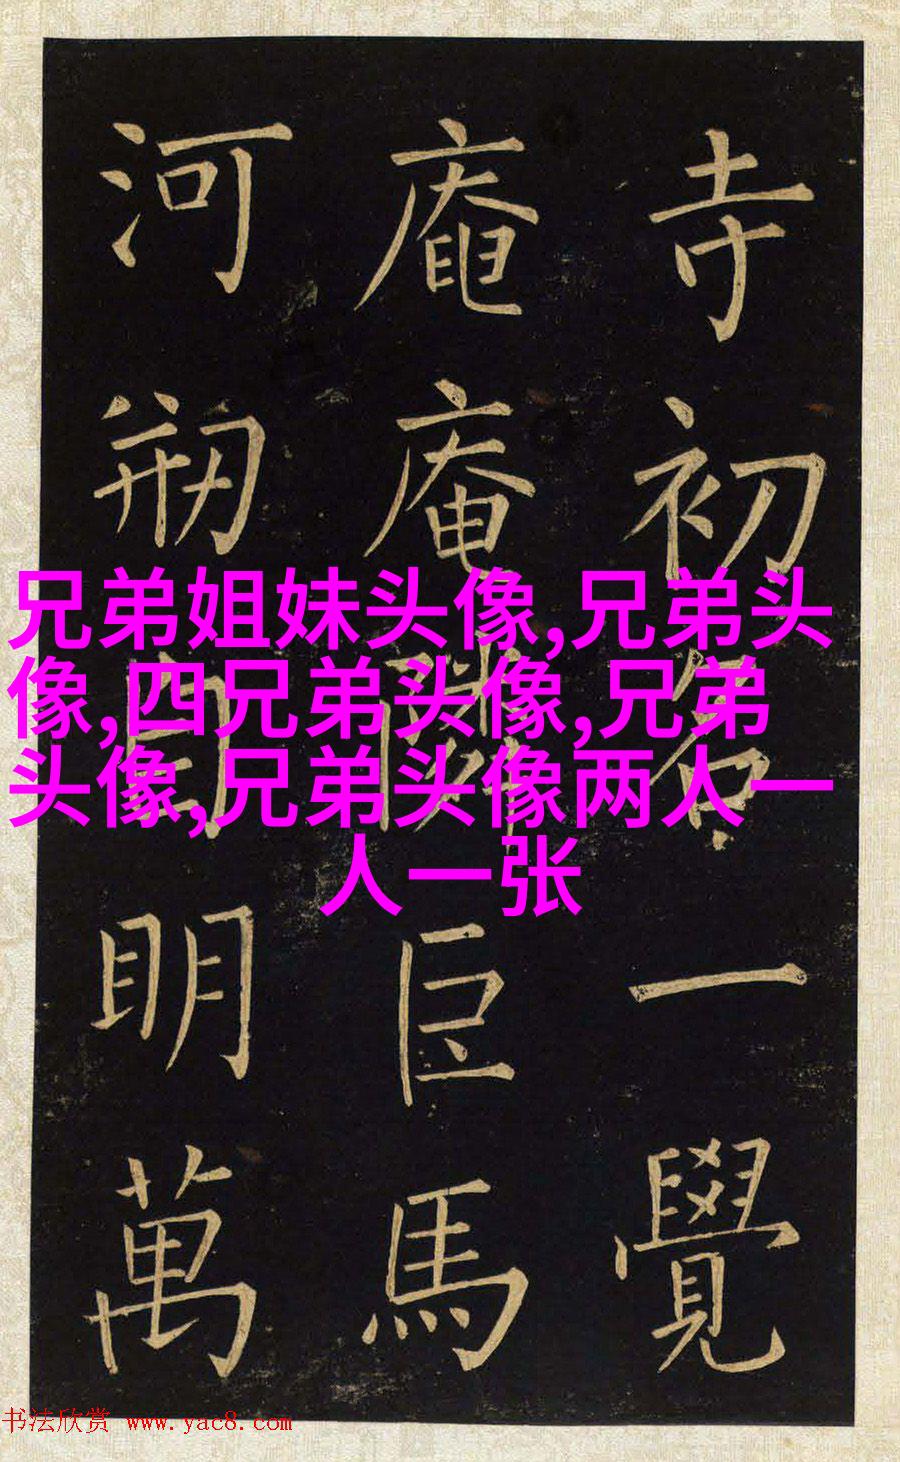 寺初名一覺
庵庵臣馬
河剏自明萬
兄弟姐妹头像,兄弟头
像,四兄弟头像,兄弟
头像,兄弟头像两人一
人一张
书法欣赏 www.yac8.com